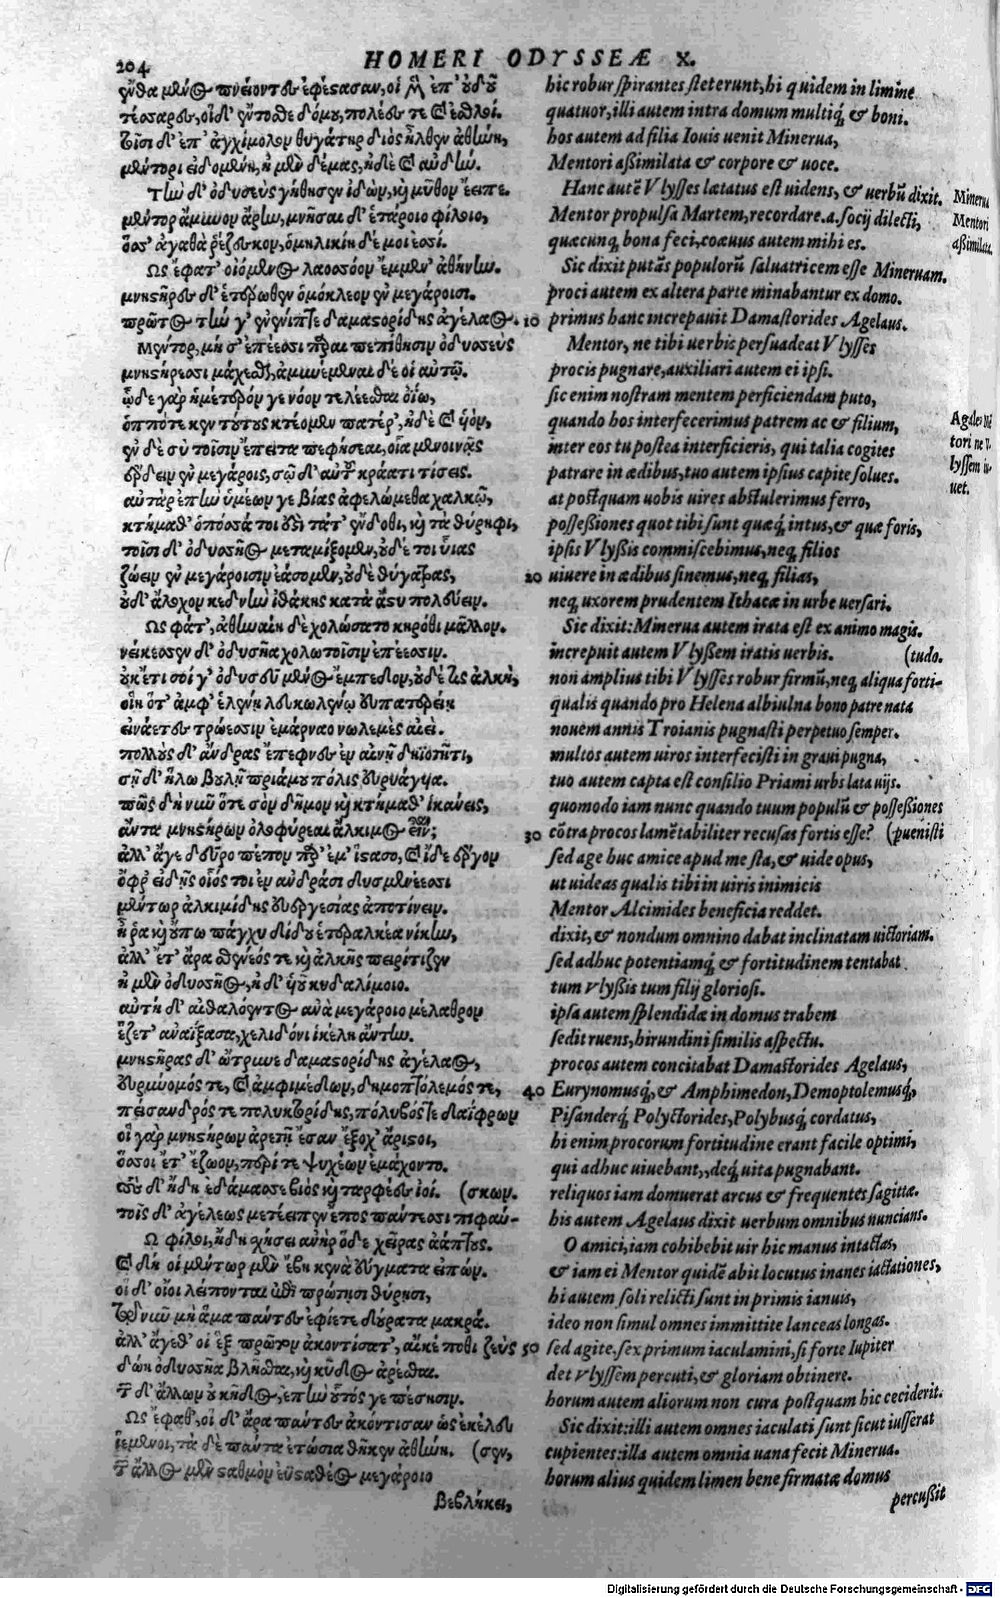 204
HOMERI ODYSSEÆ X.
ἔνθα μένος πνείοντες ἐφέστασαν, οἱ μὲν ἐπ' οὐδοῦ
τέσσαρες, οἱ δ' ἔντοσθε δόμου, πολέες τε καὶ ἐσθλοί.
τοῖσι δ' ἐπ' ἀγχίμολον θυγάτηρ διὸς ἦλθεν ἀθήνη,
μέντορι εἰδομένη, ἠ μὲν δέμας, ἠδὲ καὶ αὐδήν.
Τὴν δ' ὀδυσεὺς γήθησεν ἰδὼν, καὶ μῦθον ἔειπε.
μέντορ ἄμυνον ἄρην, μνῆσαι δ' ἑτάροιο φίλοιο,
ὅς σ' ἀγαθὰ ῥέζεσκον, ὁμηλικίη δέ μοι ἐσσί.
Ως ἔφατ' οἰόμενος λαοσσόον ἔμμεν' ἀθήνην.
μνηστῆρες δ' ἑτέρωθεν ὁμόκλεον ἐν μεγάροισι.
πρῶτος τήν γ' ἐνένιπτε δαμαστορίδης ἀγέλαος.
Μέντορ, μή σ' ἐπέεσσι παραιπεπίθησιν ὀδυσσεὺς
μνηστήρεσσι μάχεσθαι, ἀμυνέμεναι δέ οἱ αὐτῷ.
ὧδε γὰρ ἡμέτερόν γε νόον τελέεσθαι ὀΐω,
ὁππότε κεν τούτους κτέομεν πατέρ', ἠδὲ καὶ υἱὸν,
ἐν δὲ σὺ τοῖσιν ἔπειτα πεφήσεαι, οἷα μενοινᾷς
ἔρδειν ἐν μεγάροις, σῷ δ' αὐτοῦ κράατι τίσεις.
αὐτὰρ ἐπὴν ὑμέων γε βίας ἀφελώμεθα χαλκῷ,
κτήμαθ' ὁπόσσά τοι ἐστὶ τά τ' ἔνδοθι, καὶ τὰ θύρηφι,
τοῖσι δ' ὀδυσσῆος μεταμίξομεν, οὐδέ τοι υἷας
ζώειν ἐν μεγάροισιν ἐάσομεν, οὐδὲ θύγατρας,
οὐδ' ἄλοχον κεδνὴν ἰθάκης κατὰ ἄστυ πολεύειν.
Ως φάτ', ἀθηναίη δὲ χολώσατο κηρόθι μᾶλλον.
νείκεσσεν δ' ὀδυσῆα χολωτοῖσιν ἐπέεσσιν.
οὐκέτι σοί γ' ὀδυσεῦ μένος ἔμπεδον, οὐδέ τις ἀλκὴ,
οἵη ὅτ' ἀμφ' ἑλένῃ λευκωλένῳ εὐπατερείῃ
εἰνάετες τρώεσσιν ἐμάρναο νωλεμὲς αἰεὶ.
πολλοὺς δ' ἄνδρας ἔπεφνες ἐν αἰνῇ δηϊοτῆτι,
σῇ δ' ἥλω βουλῇ πριάμου πόλις εὐρυάγυια.
πῶς δὴ νῦν ὅτε σὸν δῆμον καὶ κτήμαθ' ἱκάνεις,
ἄντα μνηστήρων ὀλοφύρεαι ἄλκιμος εἶναι;
ἀλλ' ἄγε δεῦρο πέπον παρ' ἔμ' ἵστασο, καὶ ἴδε ἔργον
ὄφρ' εἰδῇς οἷός τοι ἐν ἀνδράσι δυσμενέεσσι
μέντωρ ἀλκιμίδης εὐεργεσίας ἀποτίνειν.
ἦ ρα καὶ οὔπω πάγχυ δίδου ἑτεραλκέα νίκην,
ἀλλ' ἔτ' ἄρα σθένεός τε καὶ ἀλκῆς πειρήτιζεν
ἠ μὲν ὀδυσσῆος, ἠ δ' υἱοῦ κυδαλίμοιο.
αὐτὴ δ' αἰθαλόεντος ἀνὰ μεγάροιο μέλαθρον
ἕζετ' ἀναΐξασα, χελιδόνι ἰκέλη ἄντην.
μνηστῆρας δ' ὤτρυνε δαμαστορίδης ἀγέλαος,
εὐρύνομός τε, καὶ ἀμφιμέδων, δημοπτόλεμός τε,
πείσανδρός τε πολυκτορίδης, πόλυβός τε δαΐφρων
οἱ γὰρ μνηστήρων ἀρετῇ ἔσαν ἔξοχ' ἄριστοι,
ὅσσοι ἔτ' ἔζωον, περί τε ψυχέων ἐμάχοντο.
τοὺς δ' ἤδη ἐδάμασσε βιὸς καὶ ταρφέες ἰοί. (σκων.
τοῖς δ' ἀγέλεως μετέειπεν ἔπος πάντεσσι πιφαύ-
Ω φίλοι, ἤδη σχήσει ἀνὴρ ὅδε χεῖρας ἀάπτους.
καὶ δή οἱ μέντωρ μὲν ἔβη κενὰ εὔγματα εἰπὼν.
οἱ δ' οἶοι λείπονται ἐπὶ πρώτῃσι θύρῃσι,
τῷ νῦν μὴ ἅμα πάντες ἐφίετε δούρατα μακρά.
ἀλλ' ἄγεθ' οἱ ἓξ πρῶτον ἀκοντίσατ', αἴ κέ ποθι ζεὺς
δώῃ ὀδυσσῆα βλῆσθαι, καὶ κῦδος ἀρέσθαι.
τῶν δ' ἄλλων οὐ κῆδος, ἐπὴν οὗτός γε πέσῃσιν.
Ως ἔφαθ', οἱ δ' ἄρα πάντες ἀκόντισαν ὡς ἐκέλευε
ἱέμενοι, τὰ δὲ πάντα ἐτώσια θῆκεν ἀθήνη. (σεν,
τῶν ἄλλος μὲν σταθμὸν ἐϋσταθέος μεγάροιο
βεβλήκει,
hic robur spirantes steterunt, hi quidem in limine
quatuor, illi autem intra domum multiq; & boni.
hos autem ad filia Iouis uenit Minerua,
Mentori aßimilata & corpore & uoce.
Hanc autē Vlysses lætatus est uidens, & uerbū dixit.
Mentor propulsa Martem, recordare.a. socij dilecti,
quæcunq; bona feci, coæuus autem mihi es.
Sic dixit putās populorū saluatricem esse Mineruam.
proci autem ex altera parte minabantur ex domo.
10 primus hanc increpauit Damastorides Agelaus.
Mentor, ne tibi uerbis persuadeat Vlysses
procis pugnare, auxiliari autem ei ipsi.
sic enim nostram mentem perficiendam puto,
quando hos interfecerimus patrem ac & filium,
inter eos tu postea interficieris, qui talia cogites
patrare in ædibus, tuo autem ipsius capite solues.
at postquam uobis uires abstulerimus ferro,
possessiones quot tibi sunt quæq; intus, & quæ foris,
ipsis Vlyßis commiscebimus, neq; filios
20 uiuere in ædibus sinemus, neq; filias,
neq; uxorem prudentem Ithacæ in urbe uersari.
Sic dixit: Minerua autem irata est ex animo magis.
increpuit autem Vlyßem iratis uerbis. (tudo.
non amplius tibi Vlysses robur firmū, neq; aliqua forti-
qualis quando pro Helena albiulna bono patre nata
nouem annis Troianis pugnasti perpetuo semper.
multos autem uiros interfecisti in graui pugna,
tuo autem capta est consilio Priami urbs lata uijs.
quomodo iam nunc quando tuum populū & possessiones
30 cōtra procos lamētabiliter recusas fortis esse? (puenisti
sed age huc amice apud me sta, & uide opus,
ut uideas qualis tibi in uiris inimicis
Mentor Alcimides beneficia reddet.
dixit, & nondum omnino dabat inclinatam uictoriam.
sed adhuc potentiamq; & fortitudinem tentabat
tum vlyßis tum filij gloriosi.
ipsa autem splendidæ in domus trabem
sedit ruens, hirundini similis aspectu.
procos autem concitabat Damastorides Agelaus,
40 Eurynomusq;, & Amphimedon, Demoptolemusq;,
Pisanderq; Polyctorides, Polybusq; cordatus,
hi enim procorum fortitudine erant facile optimi,
qui adhuc uiuebant, deq; uita pugnabant.
reliquos iam domuerat arcus & frequentes sagittæ.
his autem Agelaus dixit uerbum omnibus nuncians.
O amici, iam cohibebit uir hic manus intactas,
& iam ei Mentor quidē abit locutus inanes iactationes,
hi autem soli relicti sunt in primis ianuis,
ideo non simul omnes immittite lanceas longas.
50 sed agite, sex primum iaculamini, si forte Iupiter
det vlyssem percuti, & gloriam obtinere.
horum autem aliorum non cura postquam hic ceciderit.
Sic dixit: illi autem omnes iaculati sunt sicut iusserat
cupientes: illa autem omnia uana fecit Minerua.
horum alius quidem limen bene firmatæ domus
percußit
Minerua
Mentori
aßimilata.
Agelaus
tori ne V-
lyssem iu-
uet.
Digitalisierung gefördert durch die Deutsche Forschungsgemeinschaft - DFG